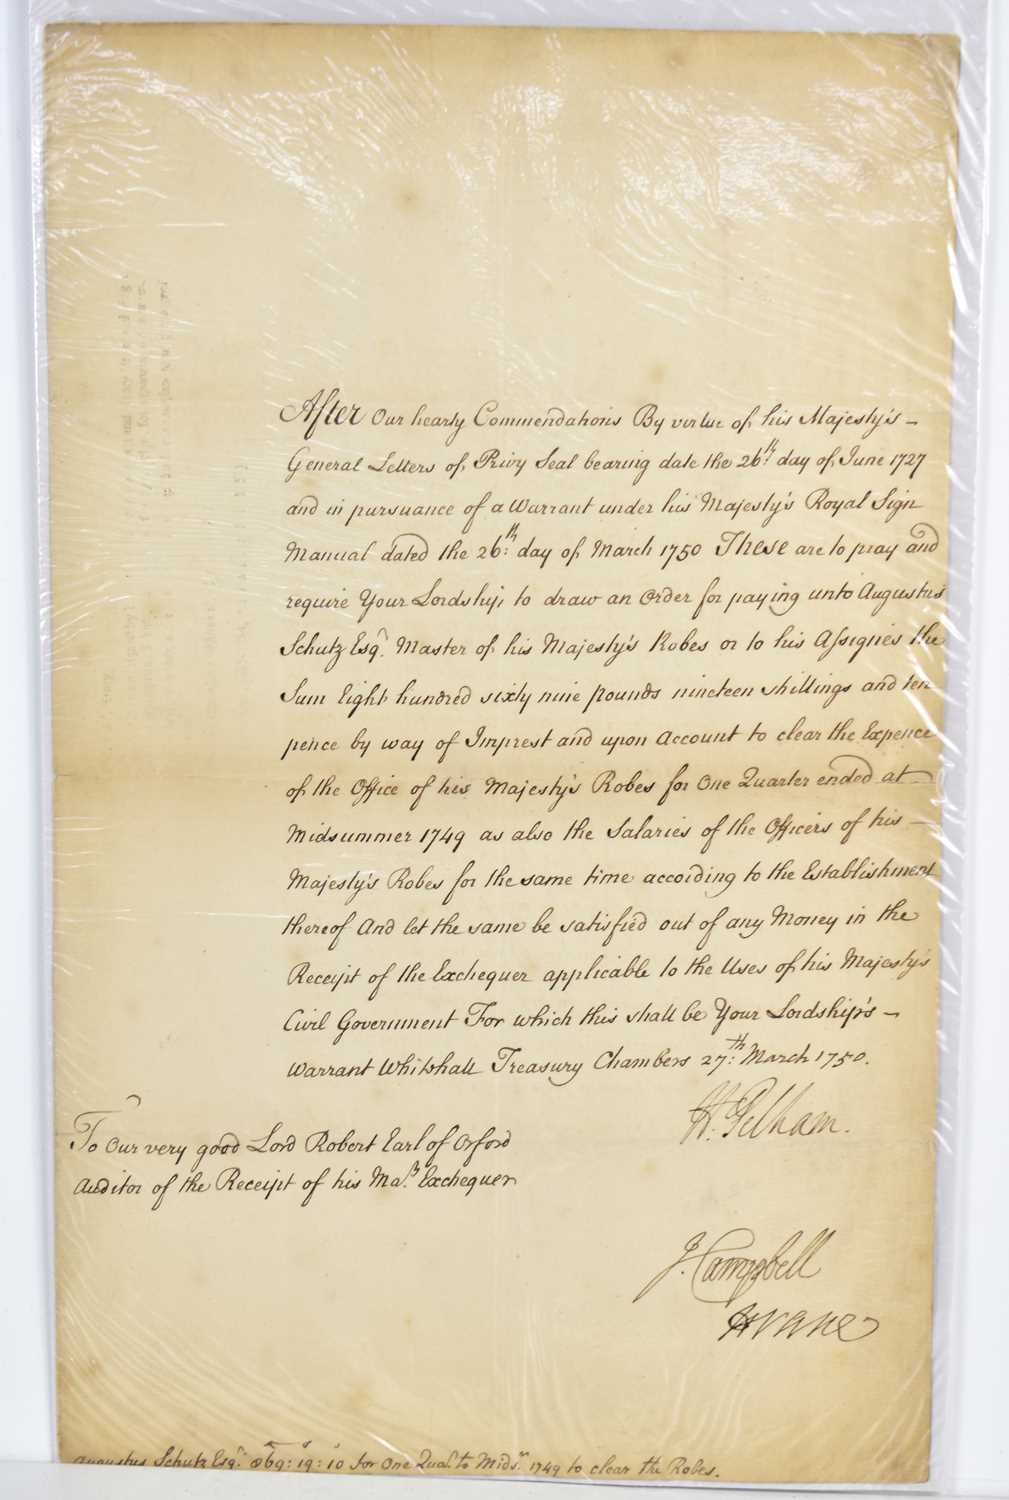 After Our hearty Commendations By virtue of his Majesty's
General Letters of Privy Seal bearing date the 26th day of June 1727
and in pursuance of a Warrant under his Majesty's Royal Sign
Manual dated the 26:th day of March 1750 These are to pray and
require Your Lordship to draw an Order for paying unto Augustus
Schutz Esqr. Master of his Majesty's Robes or to his Assignes the
Sum Eight hundred sixty nine pounds nineteen shillings and ten
pence by way of Imprest and upon Account to clear the Expence
of the Office of his Majesty's Robes for One Quarter ended at
Midsummer 1749 as also the Salaries of the Officers of his
Majesty's Robes for the same time according to the Establishment
thereof And let the same be satisfied out of any Money in the
Receipt of the Exchequer applicable to the Uses of his Majesty's
Civil Government For which this shall be Your Lordship's
Warrant Whitehall Treasury Chambers 27:th March 1750.
H. Pelham.
To Our very good Lord Robert Earl of Orford
Auditor of the Receipt of his Maty's Exchequer
J. Campbell
H Vane
Augustus Schutz Esqr. 869: 19: 10 for One Quar. to Midsr. 1749 to clear the Robes.